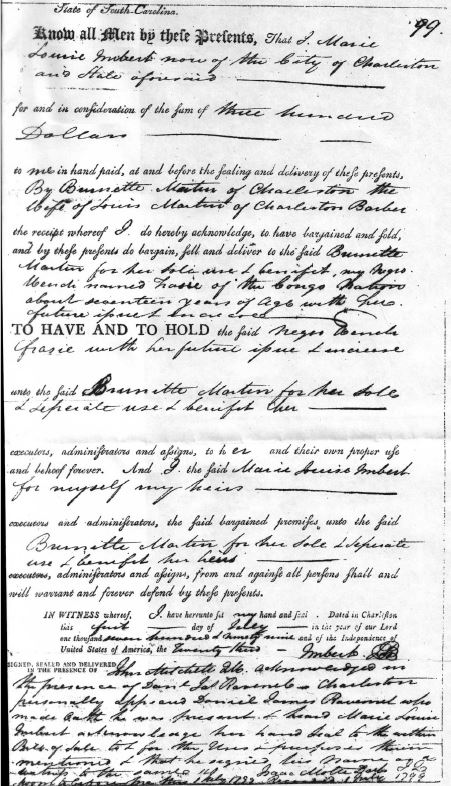 State of South-Carolina.
99.
Know all Men by these Presents, That I Marie
Louise Imbert now of the City of Charleston
and State aforesaid
for and in consideration of the sum of three hundred
Dollars
to me in hand paid, at and before the sealing and delivery of these presents,
By Brunette Martin of Charleston the
Wife of Louis Martin of Charleston Barber
the receipt whereof I do hereby acknowledge, to have bargained and sold,
and by these presents do bargain, sell and deliver to the said Brunette
Martin for her sole use & benefit, my Negro
named of the Congo Nation
about seventeen years of age with her
future issue & increase
TO HAVE AND TO HOLD the said Negro
with her future issue & increase
unto the said Brunette Martin for her sole
& seperate use & benifit her
executors, administrators and assigns, to her and their own proper use
and behoof forever. And I the said Marie Louise Imbert
for myself my heirs
executors and administrators, the said bargained premises unto the said
Brunette Martin for her sole & seperate
use & benefit her heirs
executors, administrators and assigns, from and against all persons shall and
will warrant and forever defend by these presents.
IN WITNESS whereof, I have hereunto set my hand and seal. Dated in Charleston
this first day of July in the year of our Lord
one thousand seven hundred & ninety nine and of the Independence of
United States of America, the twenty third Imbert
SIGNED, SEALED AND DELIVERED
IN THE PRESENCE OF John Mitchell acknowledged in
the presence of Danl Jas Ravenel Charleston
personally appeared Daniel James Ravenel who
made Oath he was present & heard Marie Louise
Imbert acknowledge her hand & seal to the within
Bill of Sale to & for the Uses & purposes therein
mentioned & that he signed his name as a
witness to the same Isaac Motte
before me this 1 July 1799 1799